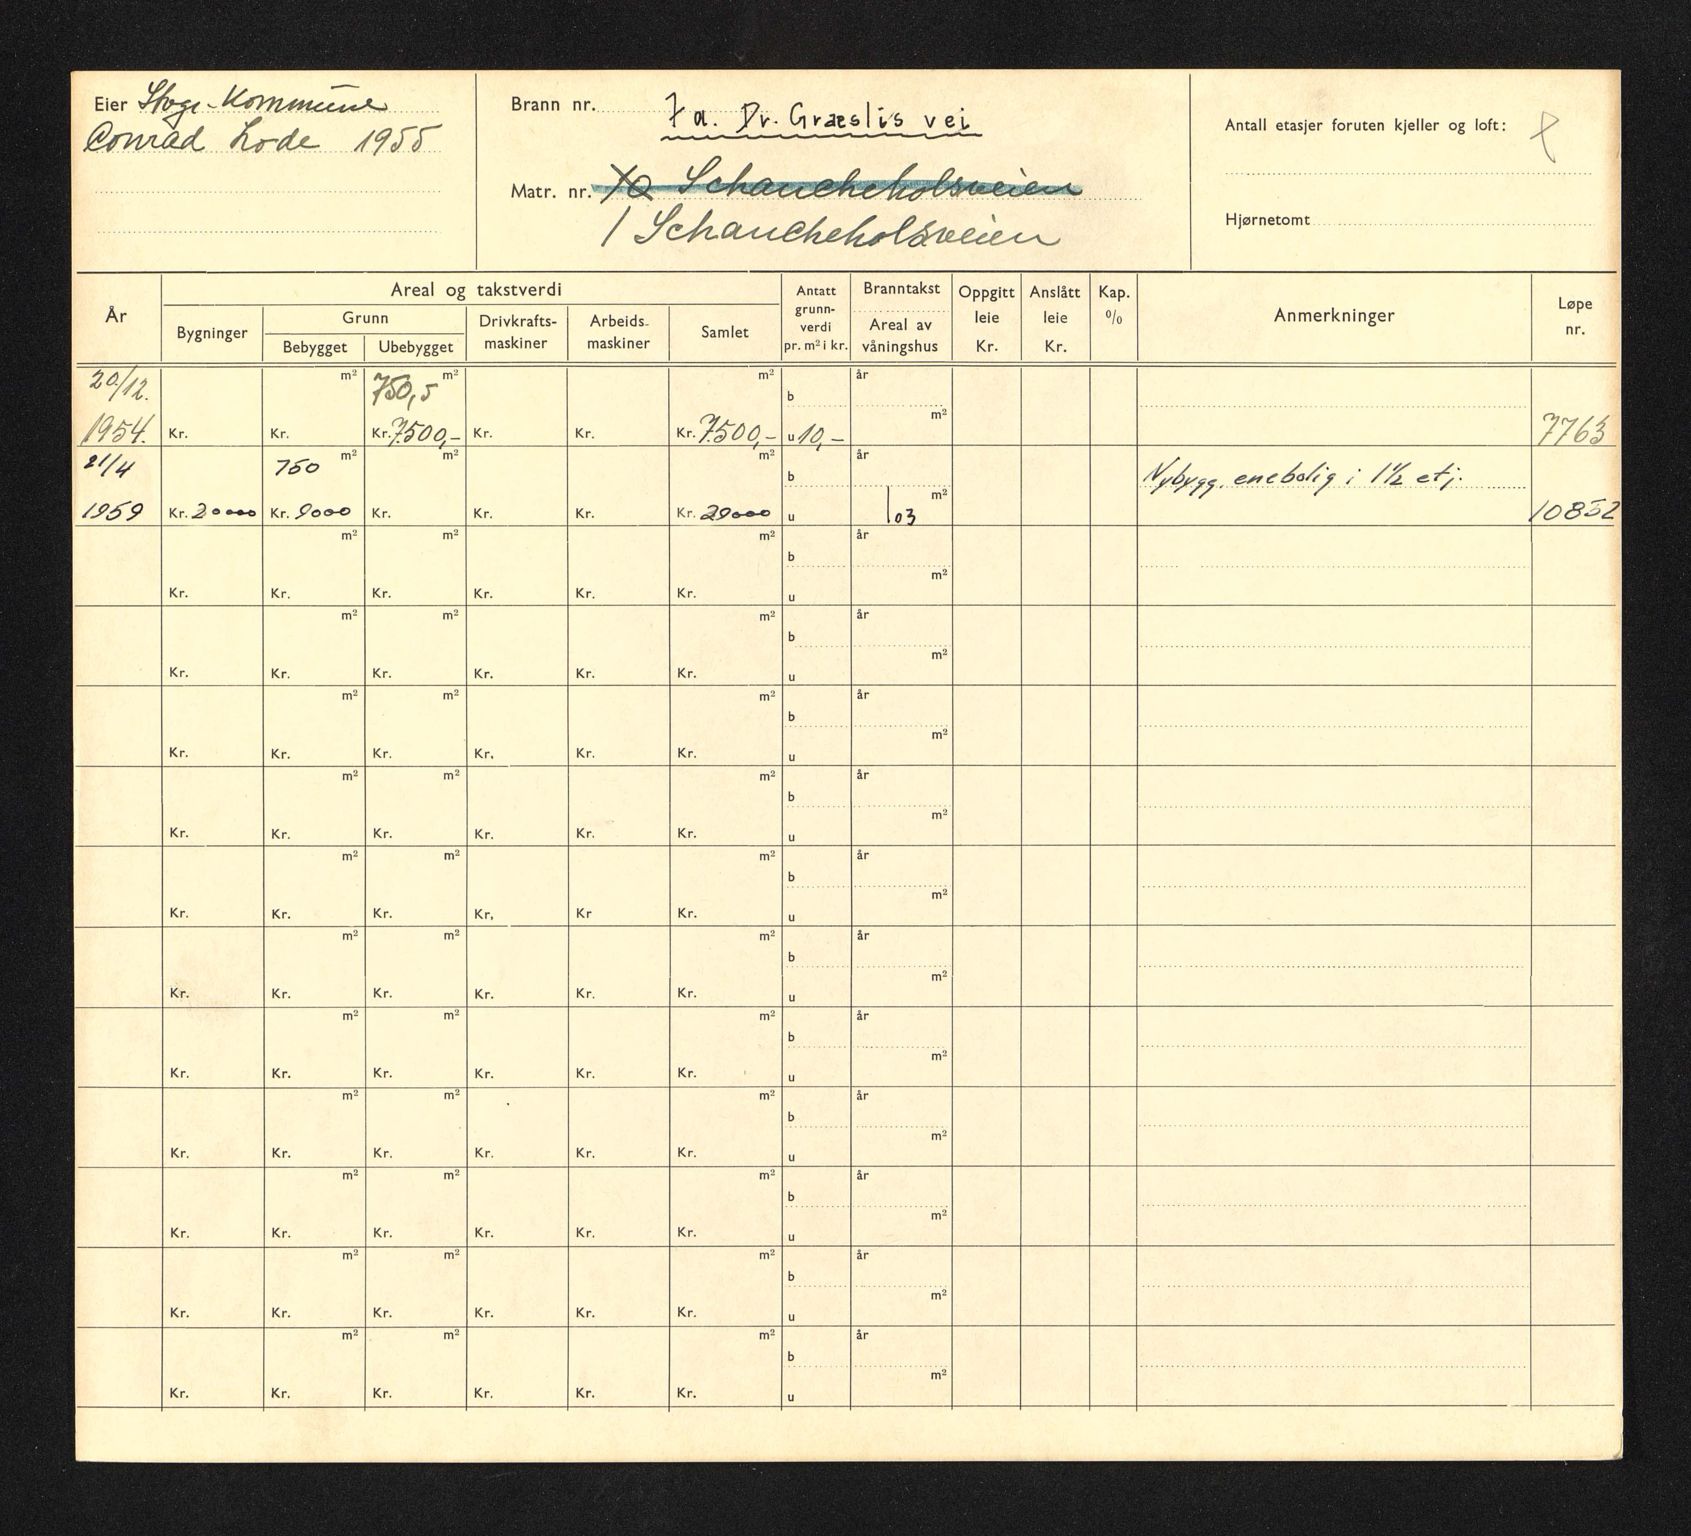 Eier Stvgr. Kommune
Conrad Lode 1955
Brann nr. 7a. Dr. Græslis vei
Matr. nr. Schancheholsveien
1 Schancheholsveien
Antall etasjer foruten kjeller og loft:
Hjørnetomt
År
Areal og takstverdi
Bygninger
Grunn
Bebygget Ubebygget
Drivkrafts-
maskiner
Arbeids-
maskiner
Samlet
Antatt
grunn-
verdi
pr. m² i kr.
Branntakst
Areal av
våningshus
Oppgitt
leie
Kr.
Anslått
leie
Kr.
Kap.
%
Anmerkninger
Løpe
nr.
20/12. m² 750,5 m² m² b år
m²
1954. Kr. Kr. Kr. 7500,- Kr. Kr. Kr. 7500,- u 10,- 7763
21/4 750 m² m² m² b år Nybygg. enebolig i 1½ etj.
m²
1959 Kr. 20000 Kr. 9000 Kr. Kr. Kr. Kr. 29000 u 103 10852
m² m² m² år
b
m²
Kr. Kr. Kr. Kr. Kr. Kr. u
m² m² m² år
b
m²
Kr. Kr. Kr. Kr. Kr. Kr. u
m² m² m² år
b
m²
Kr. Kr. Kr. Kr. Kr. Kr. u
m² m² m² år
b
m²
Kr. Kr. Kr. Kr. Kr. Kr. u
m² m² m² år
b
m²
Kr. Kr. Kr. Kr. Kr Kr. u
m² m² m² år
b
m²
Kr. Kr. Kr. Kr. Kr. Kr. u
m² m² m² år
b
m²
Kr. Kr. Kr. Kr. Kr. Kr. u
m² m² m² år
b
m²
Kr. Kr. Kr. Kr. Kr. Kr. u
m² m² m² år
b
m²
Kr. Kr. Kr. Kr. Kr. Kr. u
m² m² m² år
b
m²
Kr. Kr. Kr. Kr. Kr. Kr. u
m² m² m² år
b
m²
Kr. Kr. Kr. Kr. Kr. Kr. u